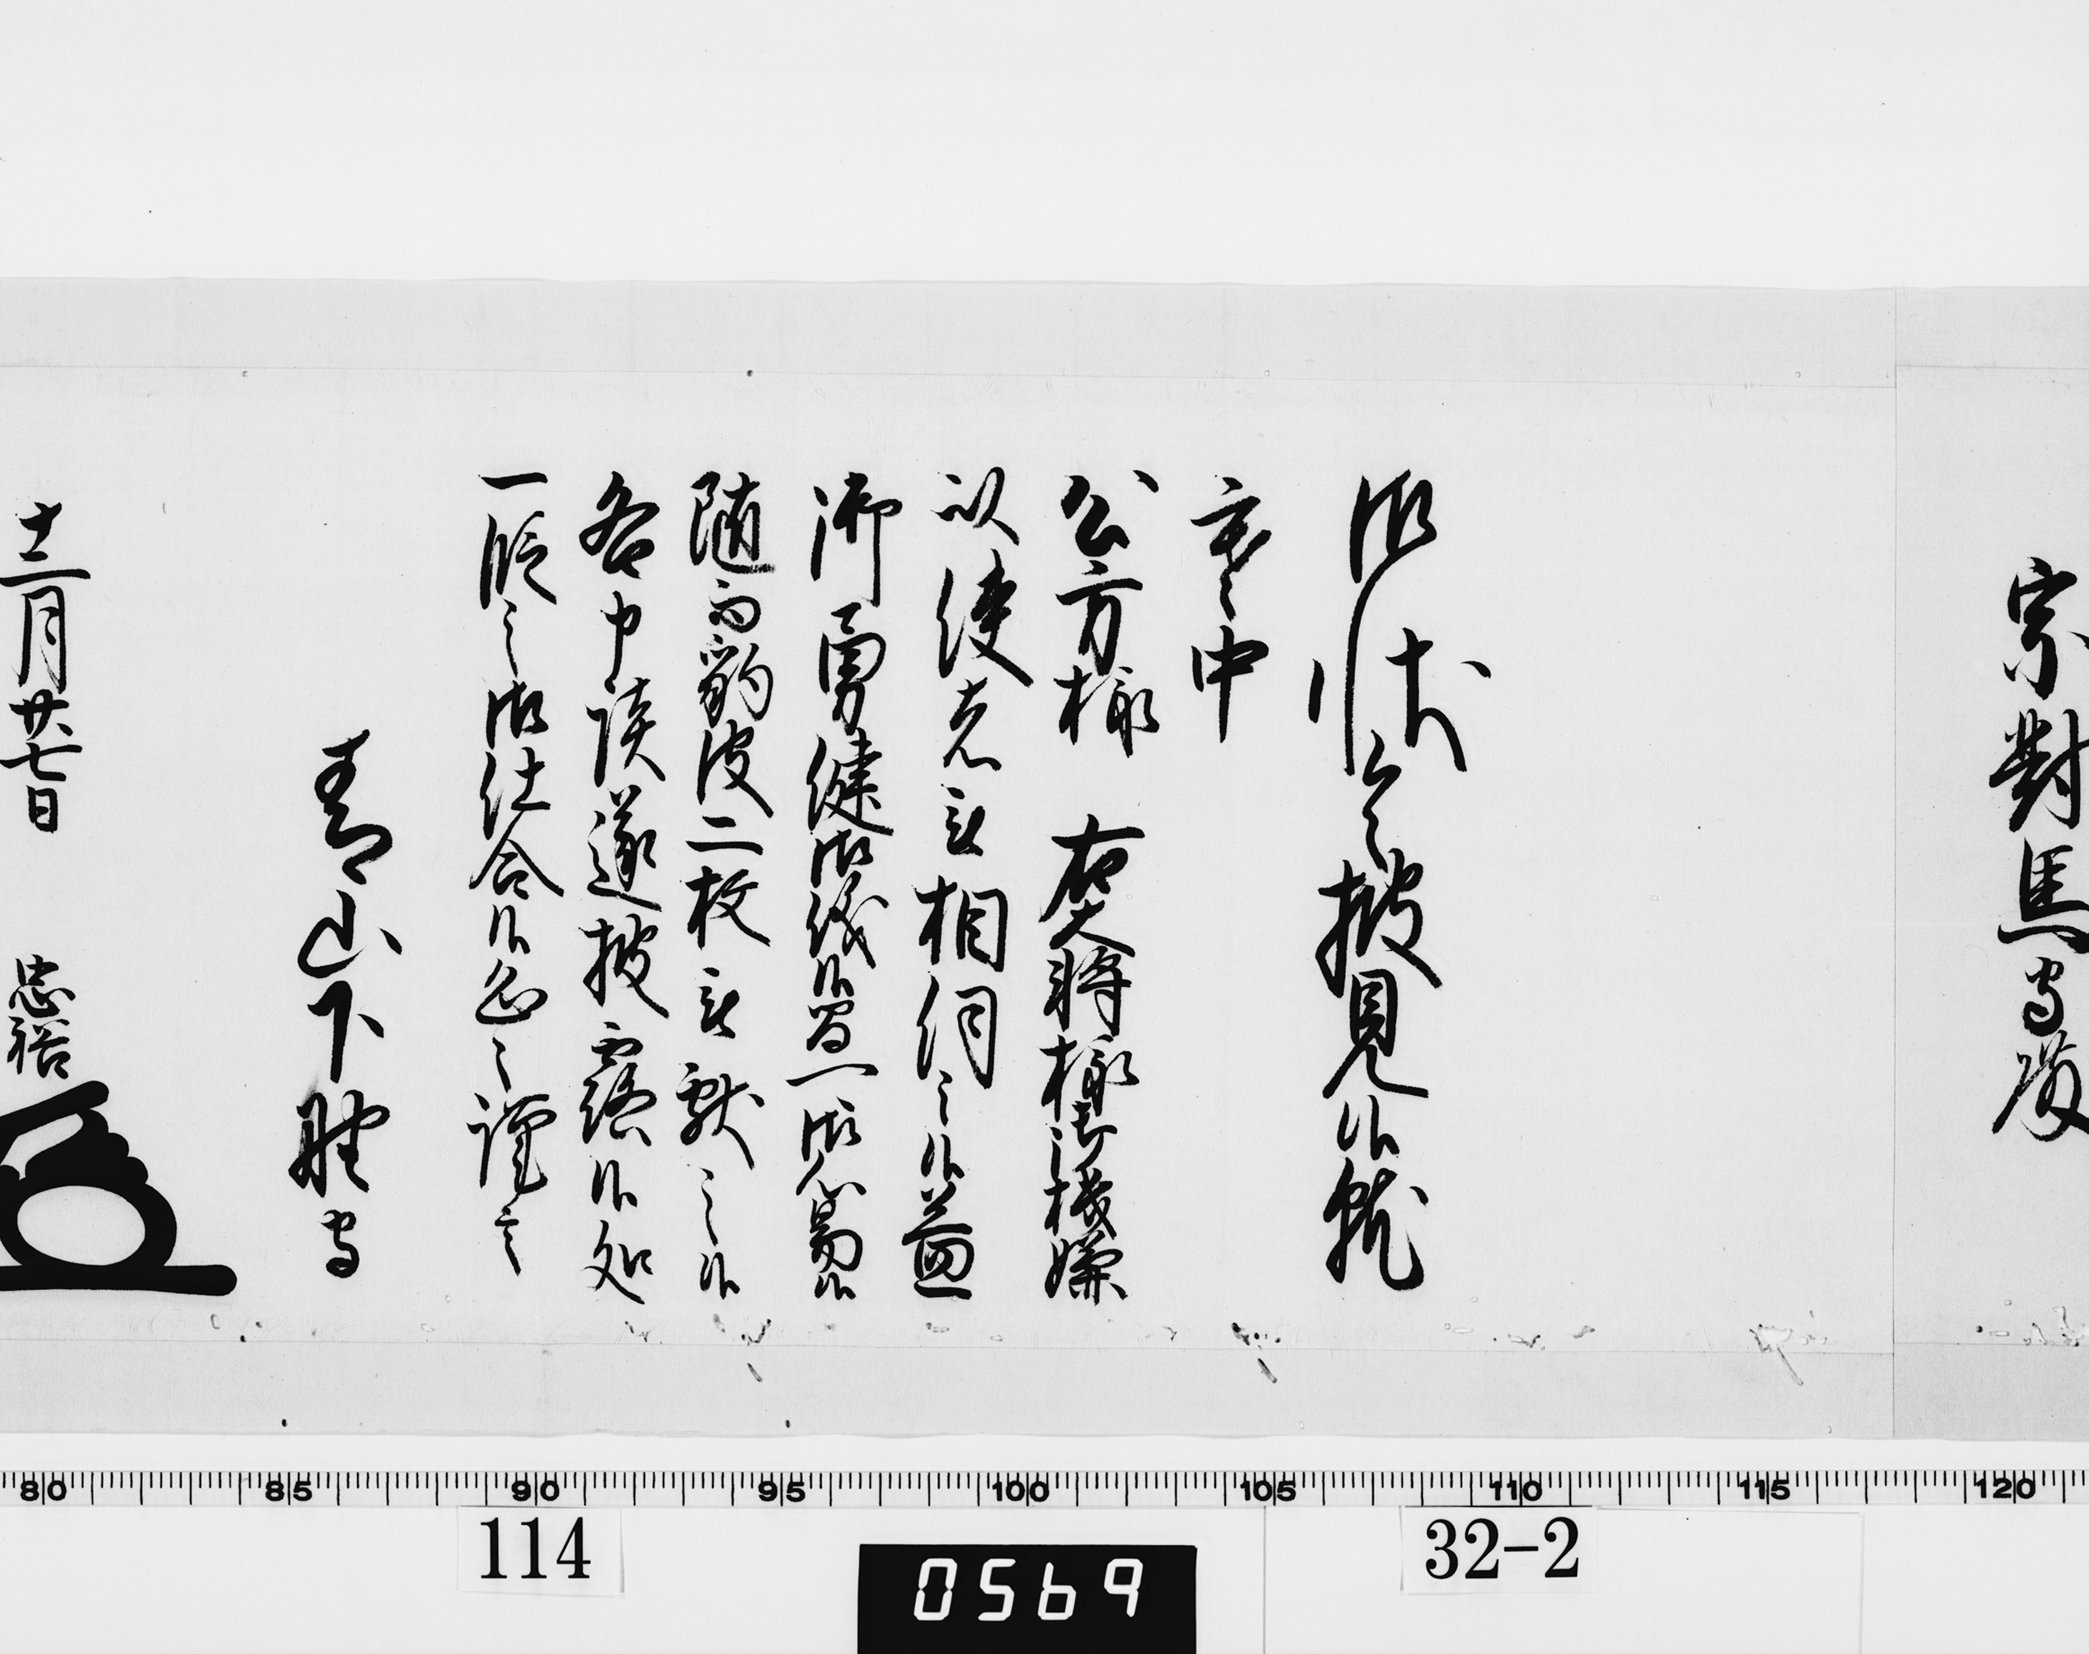 宗對馬守殿
御状令披見候就
寒中
公方様 右大将様御機嫌
以使者被相伺之候益
御勇健御儀候間可御心易候
随而豹皮二枚被献之候
各申談遂披露候処
一段之御仕合候恐々謹言
青山下野守
十二月廿七日 忠裕
80 85 90 95 100 105 110 115 120
114
32-2
0569